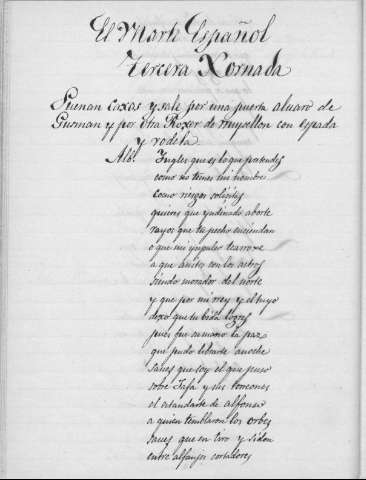 El Marte Español
Tercera Xornada
Suenan Caxas y sale por una puerta aluaro de
Gusman y por otra Roxer de ruysellon con espada
y rodela
Alb. Ingles que es lo que pretendes
como no temes mi nombre
como riesgos solisitas
quieres que yndinado aborte
rayos que tu pecho enciendan
o que mi ympulso te arroxe
a que auites con los astros
siendo morador del norte
y que por mi rey y el tuyo
dexo que tu bida logres
pues fue su mano la paz
que pudo librarte anoche
saues que soy el que puso
sobre Jafa y sus torreones
el estandarte de alfonso
a quien temblaron los orbes
saues que en tiro y sidon
entre alfanjes cortadores